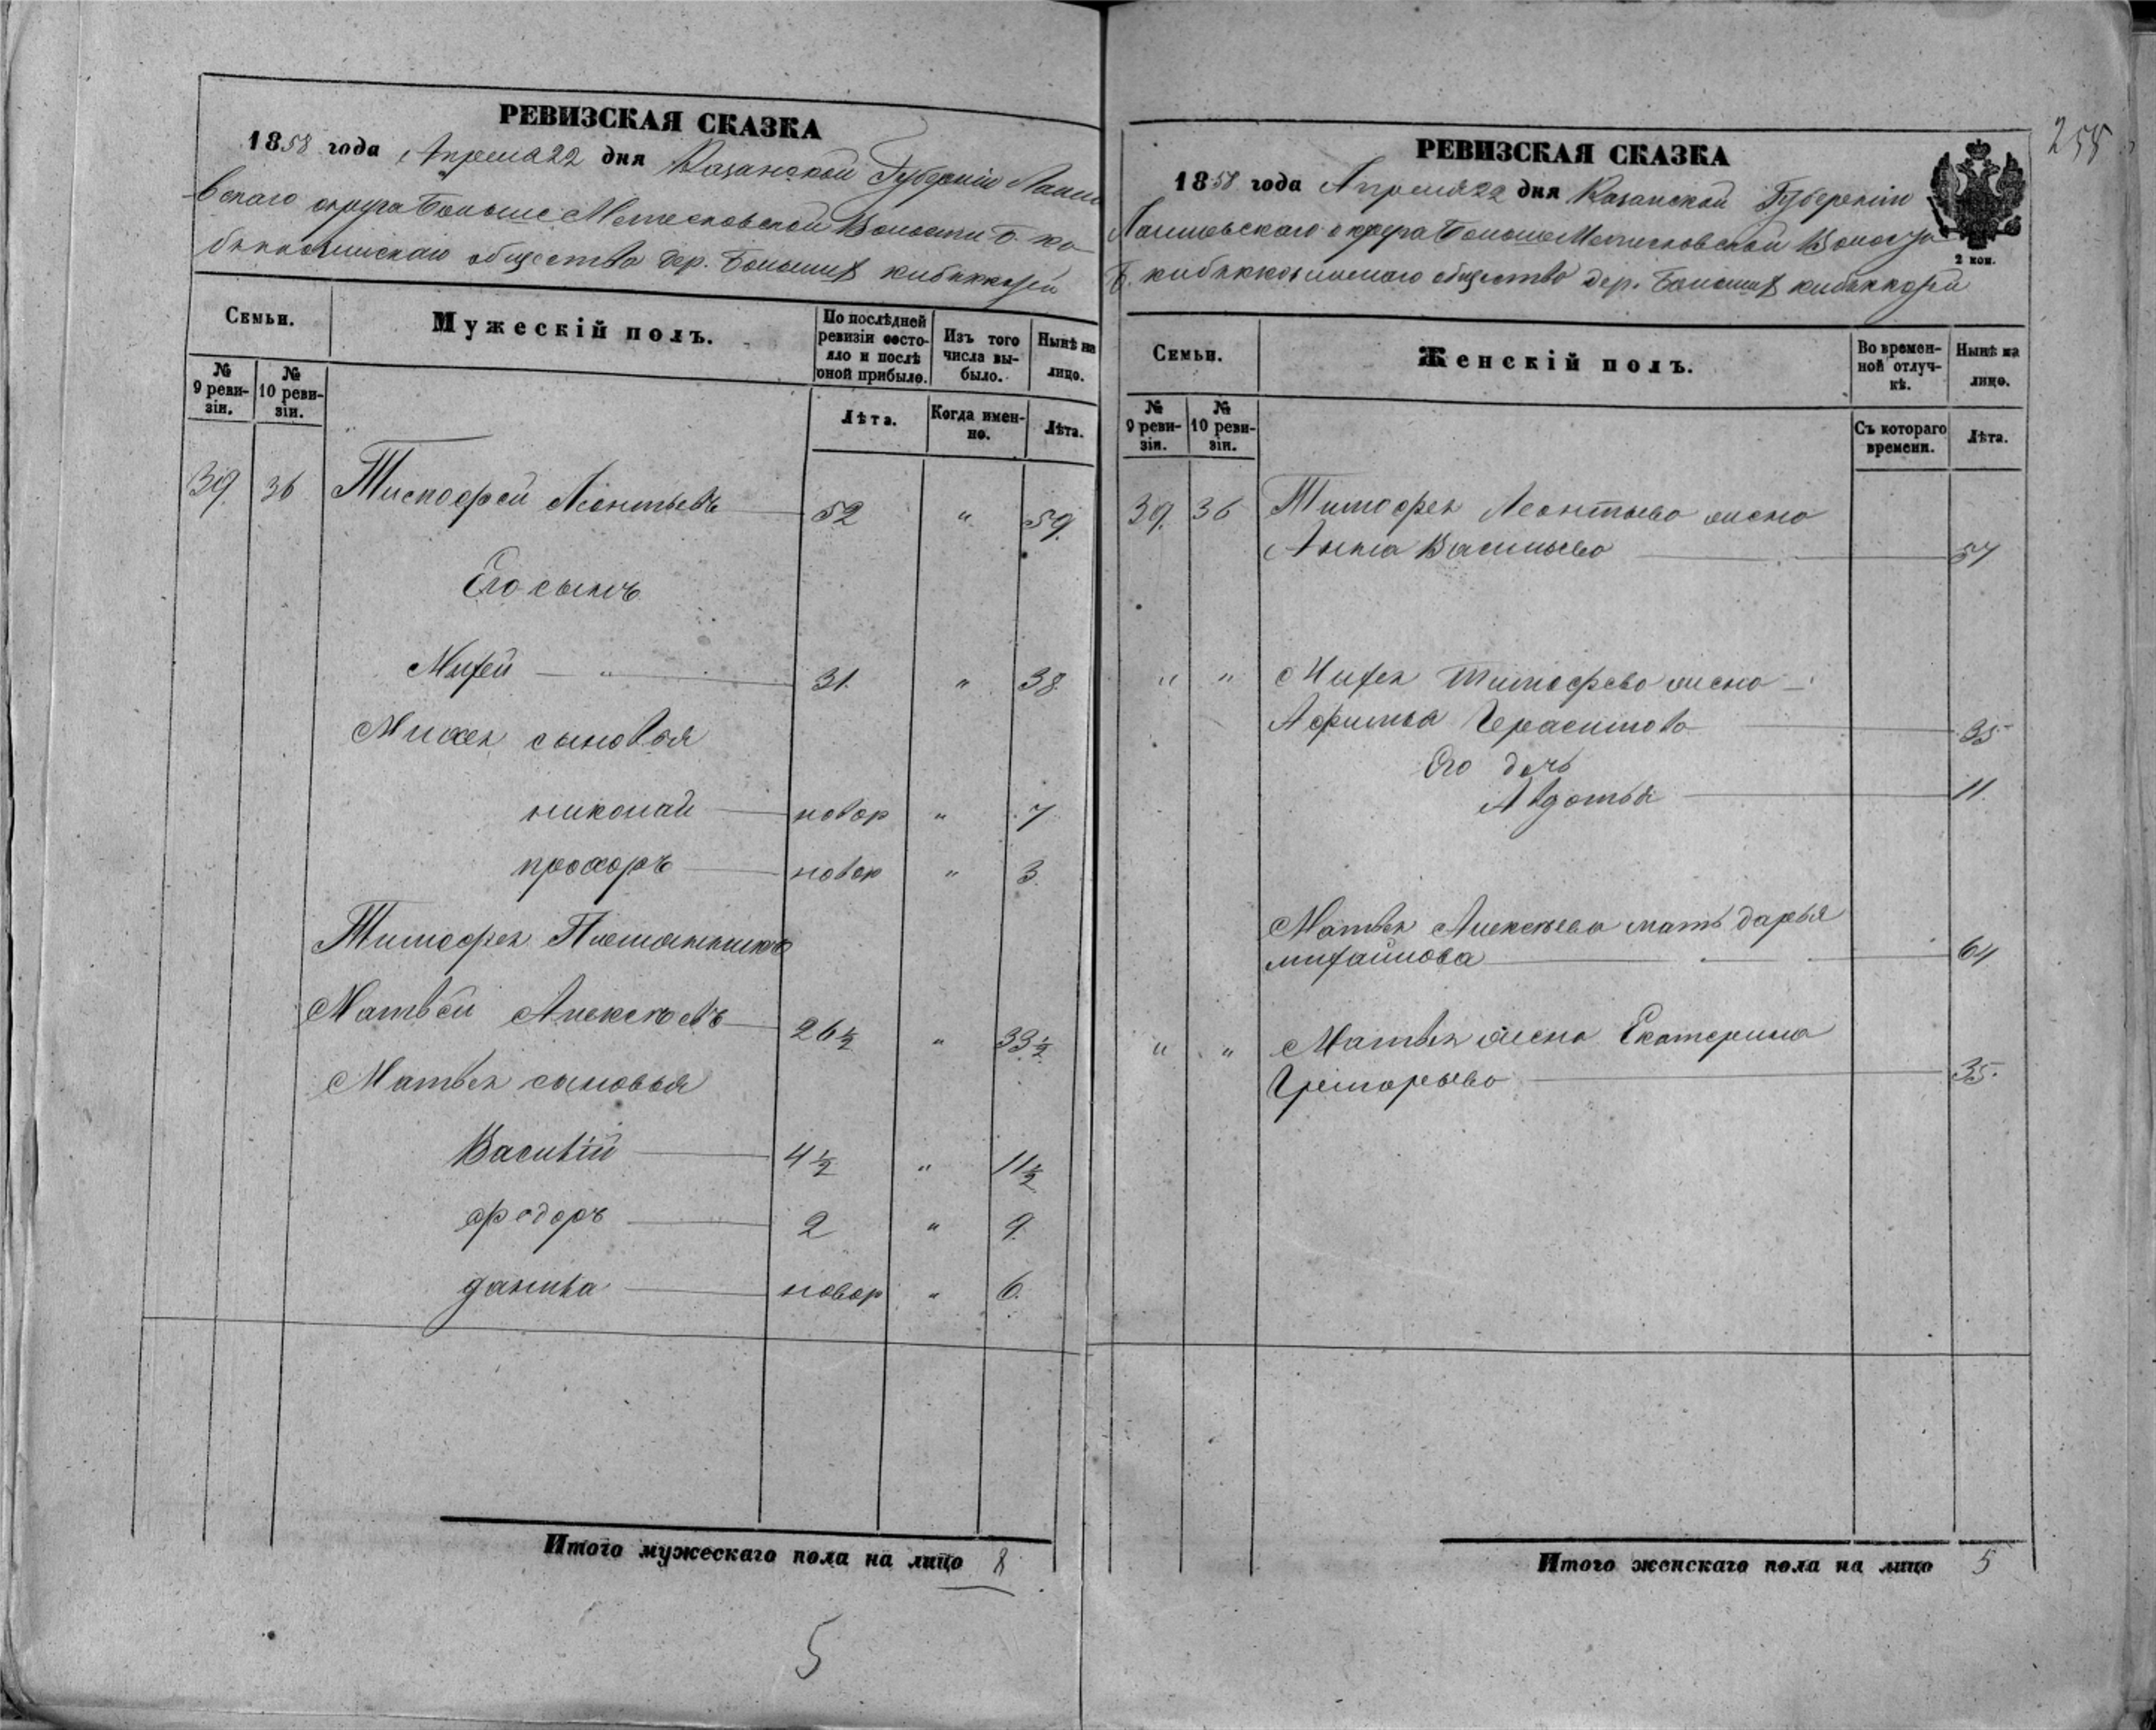 РЕВИЗСКАЯ СКАЗКА
1858 года Апреля 22 дня Казанской Губерніи Лаише
вскаго округа Больше Метесковской Волости Б. ки
бяккозинскаго общества дер. Большихъ кибяккозей
Семьи.
Мужескій полъ.
По послѣдней ревизіи состояло и послѣ оной прибыло.
Изъ того числа выбыло.
Нынѣ на лицо.
№ 9 ревизіи.
№ 10 ревизіи.
Лѣта.
Когда именно.
Лѣта.
39. 36 Тимофей Леонтьевъ 52 " 59.
Его сынъ
Михей " 31. " 38.
Михея сыновья
николай новор " 7
прохоръ новор " 3.
Тимофея Племянникъ
Матвей Алексеевъ 26½ " 33½
Матвея сыновья
Василий 4½ " 11½
федоръ 2 " 9.
данила новор " 6.
Итого мужескаго пола на лицо 8
5
258
РЕВИЗСКАЯ СКАЗКА
1858 года Апреля 22 дня Казанской Губерніи
Лаишевскаго округа Больше Метесковской Волости
Б. кибяккозинскаго общества дер. Большихъ кибяккозей
2 коп.
Семьи.
Женскій полъ.
Во временной отлучкѣ.
Нынѣ на лицо.
№ 9 ревизіи.
№ 10 ревизіи.
Съ котораго времени.
Лѣта.
39. 36 Тимофея Леонтьева жена
Анна Васильева 57
" " Михея Тимофева жена
Афимья Герасимова 35
Его дочь
Авдотья 11.
Матвея Алексеева мать дарья
михайлова 64
" " Матвея жена Екатерина
Григорьева 35.
Итого женскаго пола на лицо 5